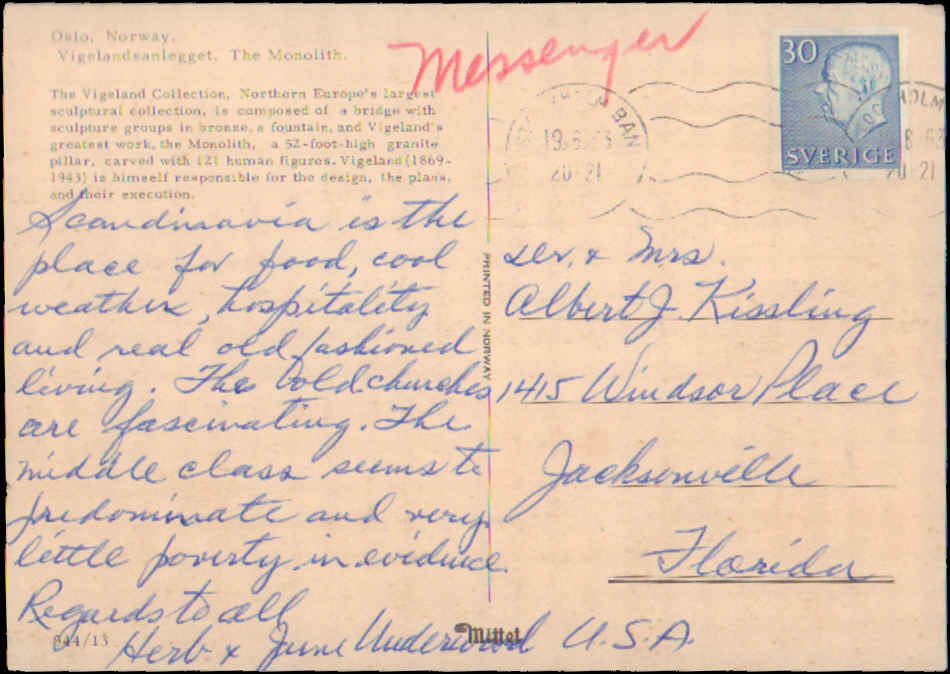 Oslo, Norway.
Vigelandsanlegget. The Monolith.
The Vigeland Collection, Northern Europe's largest
sculptural collection, is composed of a bridge with
sculpture groups in bronze, a fountain, and Vigeland's
greatest work, the Monolith, a 52-foot-high granite
pillar, carved with 121 human figures. Vigeland (1869-
1943) is himself responsible for the design, the plans,
and their execution.
Messenger
30
SVERIGE
BAN
20-21
20 21
Scandinavia is the
place for food, cool
weather, hospitality
and real old fashioned
living. The old churches
are fascinating. The
middle class seems to
predominate and very
little poverty in evidence.
Regards to all
Herb & June Underwood
PRINTED IN NORWAY
& Mrs.
Albert J. Kissling
1415 Windsor Place
Jacksonville
Florida
U.S.A.
844/13
Mittet